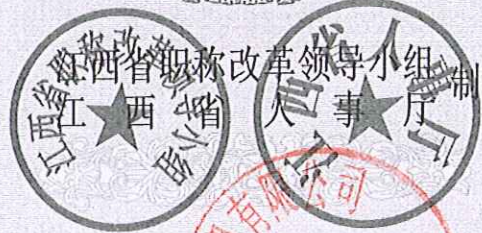 江西省职称改革领导小组
江西省人事厅
制
江西省职称改革领导小组
江西省人事厅
有限公司